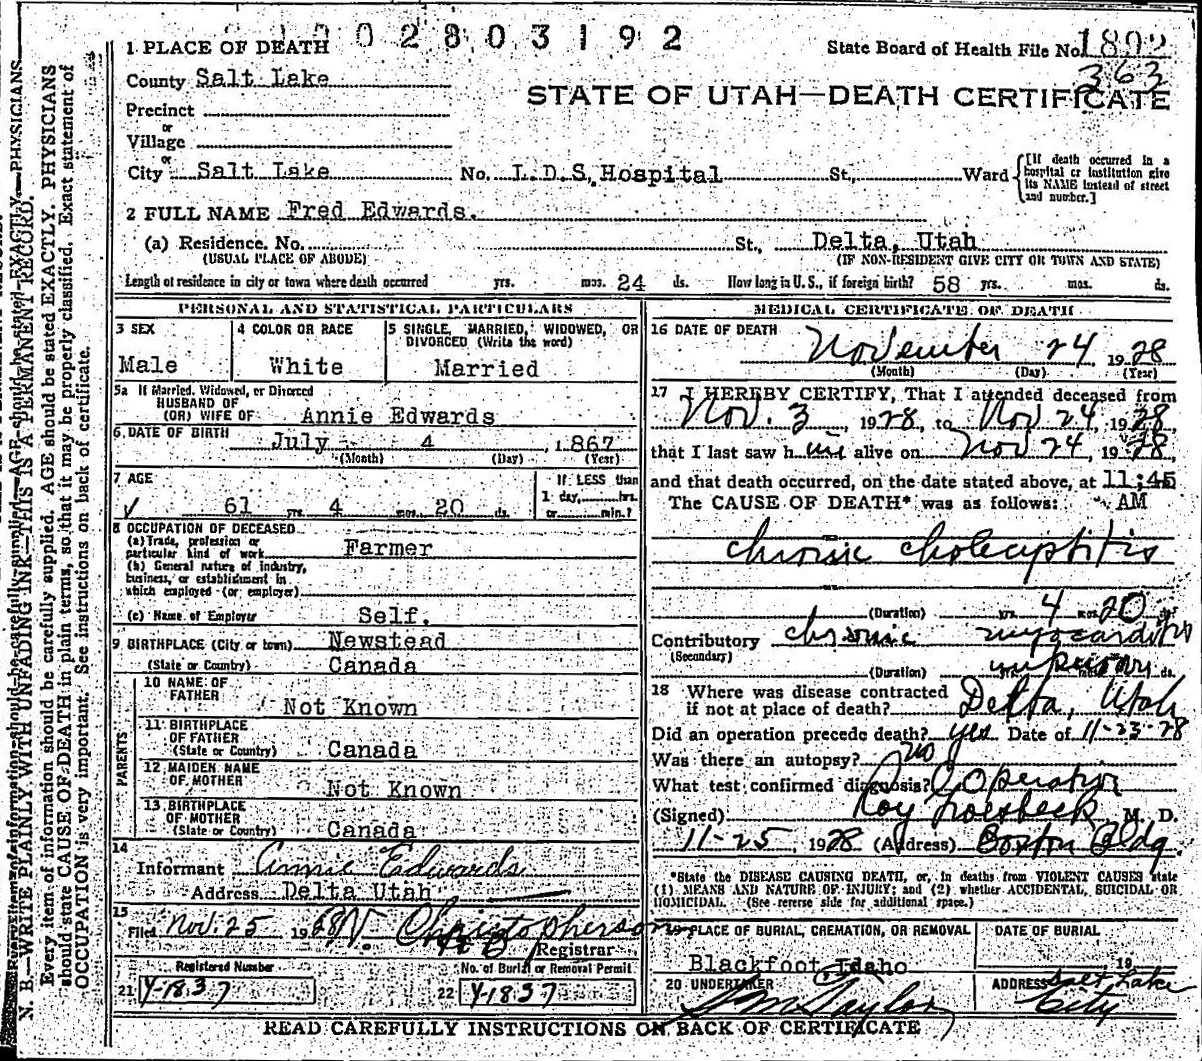 0 0 2 8 0 3 1 9 2
State Board of Health File No. 1892
363
STATE OF UTAH—DEATH CERTIFICATE
1 PLACE OF DEATH
County Salt Lake
Precinct
or
Village
or
City Salt Lake No. L.D.S. Hospital St., Ward
[If death occurred in a
hospital or institution give
its NAME instead of street
and number.]
2 FULL NAME Fred Edwards.
(a) Residence. No. St., Delta, Utah
(USUAL PLACE OF ABODE) (IF NON-RESIDENT GIVE CITY OR TOWN AND STATE)
Length of residence in city or town where death occurred yrs. mos. 24 ds. How long in U.S., if foreign birth? 58 yrs. mos. ds.
PERSONAL AND STATISTICAL PARTICULARS
3 SEX
Male
4 COLOR OR RACE
White
5 SINGLE, MARRIED, WIDOWED, OR
DIVORCED (Write the word)
Married
5a If Married, Widowed, or Divorced
HUSBAND OF
(OR) WIFE OF Annie Edwards
6 DATE OF BIRTH July 4, 1867
(Month) (Day) (Year)
7 AGE
61 yrs. 4 mos. 20 ds.
If LESS than
1 day, hrs.
or min.?
8 OCCUPATION OF DECEASED
(a) Trade, profession or
particular kind of work Farmer
(b) General nature of industry,
business, or establishment in
which employed (or employer)
(c) Name of Employer Self.
9 BIRTHPLACE (City or town) Newstead
(State or Country) Canada
PARENTS
10 NAME OF
FATHER Not Known
11 BIRTHPLACE
OF FATHER
(State or Country) Canada
12 MAIDEN NAME
OF MOTHER Not Known
13 BIRTHPLACE
OF MOTHER
(State or Country) Canada
14
Informant Annie Edwards
Address Delta Utah
15
Filed Nov. 25 1928 Christopherson
Registrar
Registered Number
21 Y-1837
No. of Burial or Removal Permit
22 Y-1837
MEDICAL CERTIFICATE OF DEATH
16 DATE OF DEATH
November 24 1928
(Month) (Day) (Year)
17 I HEREBY CERTIFY, That I attended deceased from
Nov. 3, 1928, to Nov 24, 1928
that I last saw him alive on Nov 24, 1928,
and that death occurred, on the date stated above, at 11:45
The CAUSE OF DEATH* was as follows: AM
chronic cholecystitis
(Duration) yrs. 4 mos. 20 ds.
Contributory chronic myocarditis
(Secondary)
(Duration) ds.
18 Where was disease contracted
if not at place of death? Delta, Utah
Did an operation precede death? yes Date of 11-23-28
Was there an autopsy? no
What test confirmed diagnosis? Operation
(Signed) Roy Groesbeck, M. D.
11-25, 1928 (Address) Boston Bldg.
*State the DISEASE CAUSING DEATH, or, in deaths from VIOLENT CAUSES state
(1) MEANS AND NATURE OF INJURY; and (2) whether ACCIDENTAL, SUICIDAL OR
HOMICIDAL. (See reverse side for additional space.)
19 PLACE OF BURIAL, CREMATION, OR REMOVAL
Blackfoot, Idaho
DATE OF BURIAL
19
20 UNDERTAKER
S M Taylor
ADDRESS Salt Lake
City
READ CAREFULLY INSTRUCTIONS ON BACK OF CERTIFICATE
N. B.—WRITE PLAINLY WITH UNFADING INK—THIS IS A PERMANENT RECORD.
Every item of information should be carefully supplied. AGE should be stated EXACTLY. PHYSICIANS
should state CAUSE OF DEATH in plain terms, so that it may be properly classified. Exact statement of
OCCUPATION is very important. See instructions on back of certificate.